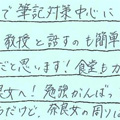 で筆記対策中心に
教授と話すのも簡単
だと思います！食堂も
女へ！勉強がんば
だけど、奈良女の周りに